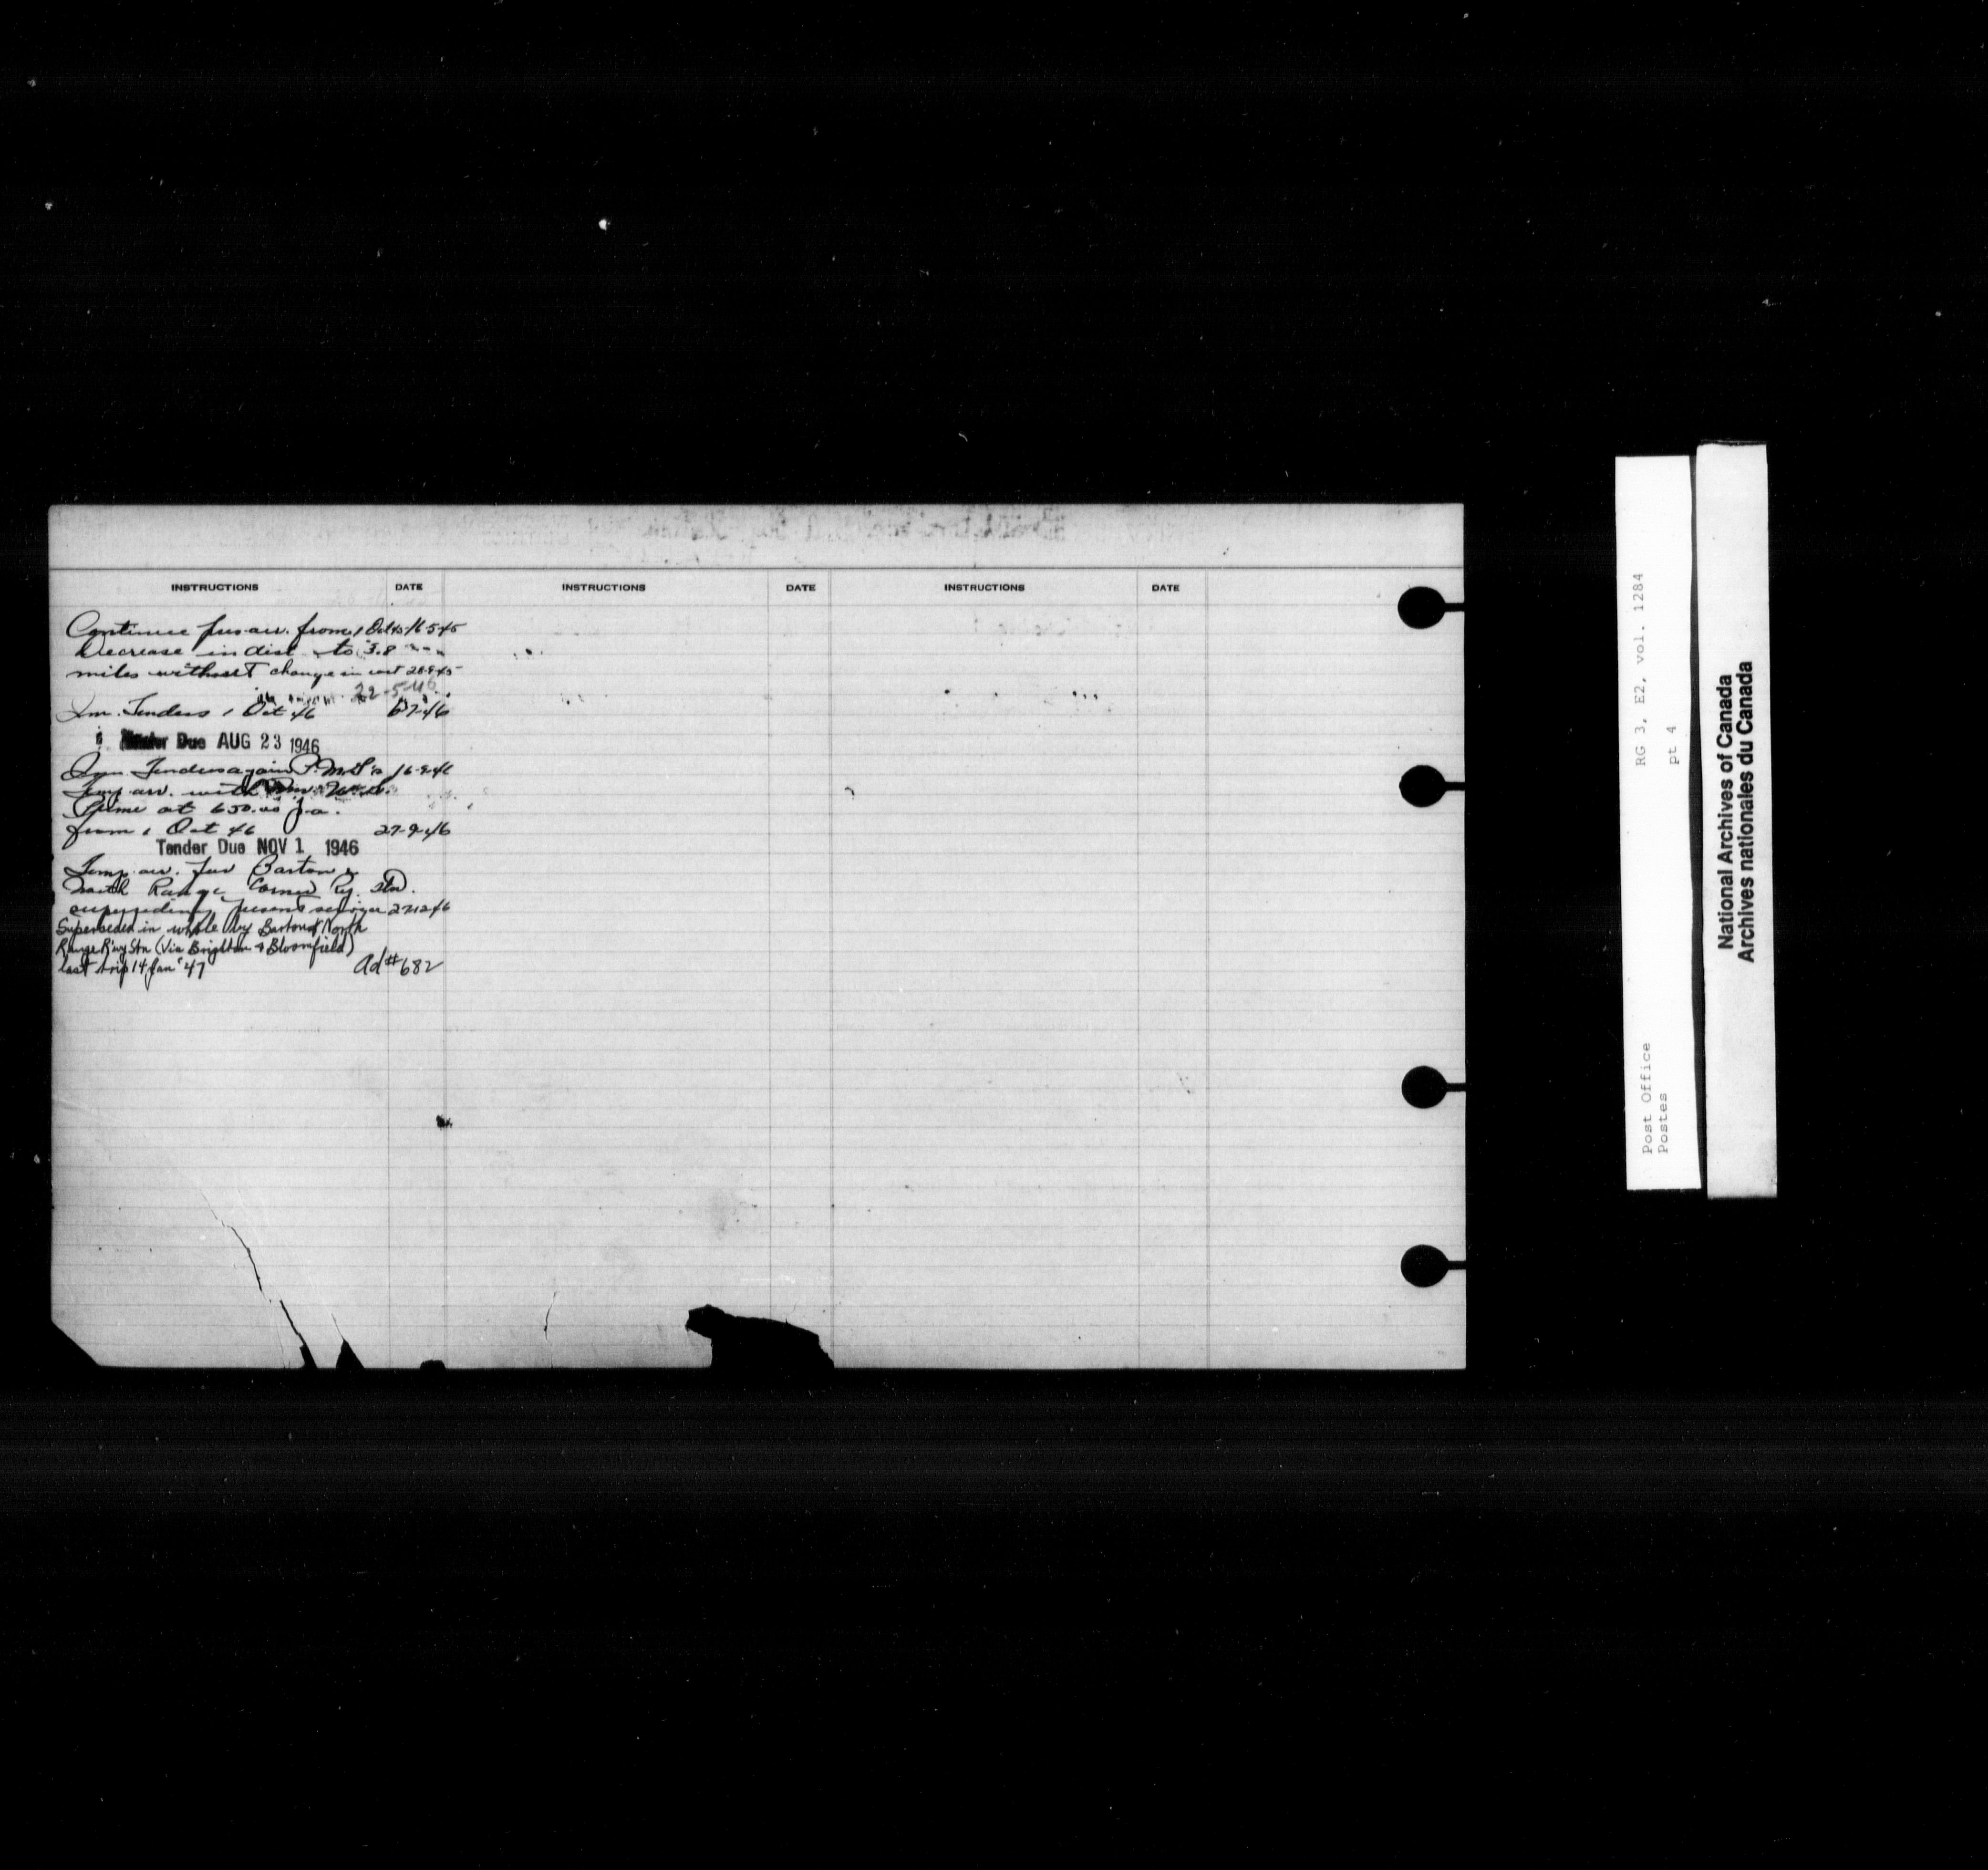 INSTRUCTIONS DATE INSTRUCTIONS DATE INSTRUCTIONS DATE
Continue pres. arr. from 1 Oct 45 16-5-45
Decrease in dist to 3.8
miles without change in cost 28-9-45
22-5-46
Inv. Tenders 1 Oct 46
Due AUG 23 1946
Inv. Tenders again 16-9-46
Temp. arr. with
Prime at 650.00 p.a.
from 1 Oct 46 27-9-46
Tender Due NOV 1 1946
Temp. arr. for Barton &
North Range Corner Ry. Stn.
superseding present service 27-12-46
Superseded in whole by Barton & North
Range R'wy Stn (Via Brighton & Bloomfield)
last trip 14 Jan '47 Ad # 682
Post Office RG 3, E2, vol. 1284
Postes pt 4
National Archives of Canada
Archives nationales du Canada